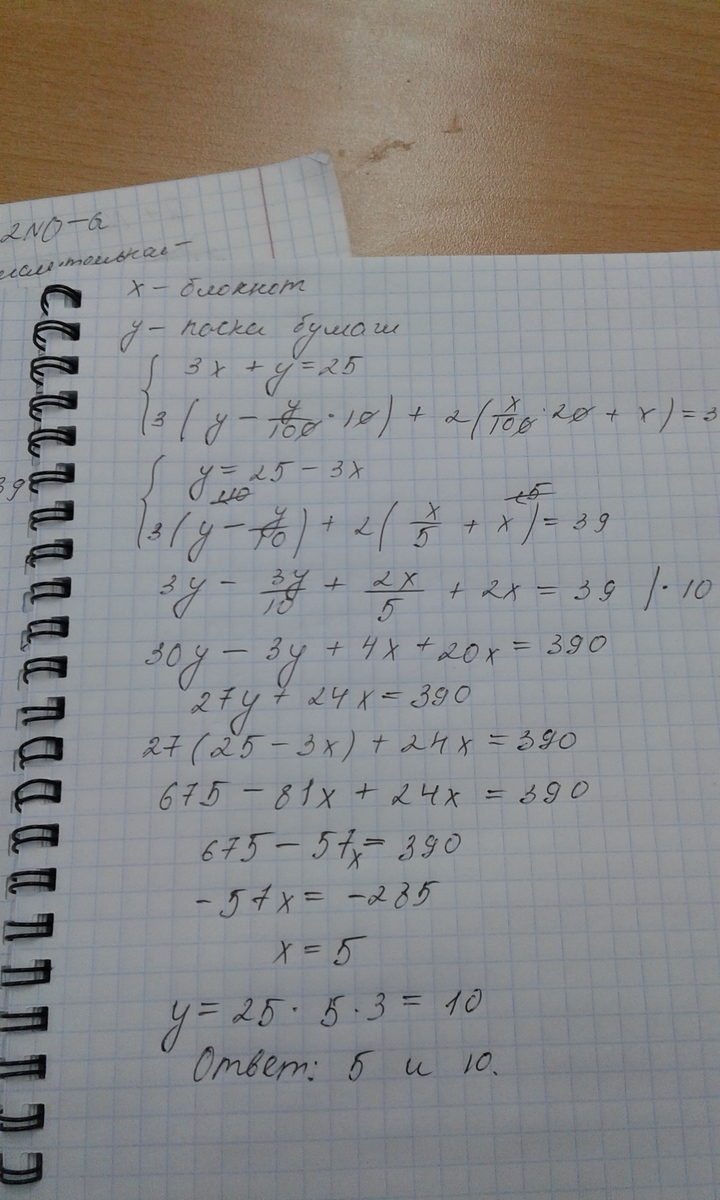 2NO-a
x - блокнот
y - поска бумаги
{ 3x + y = 25
{ 3(y - y/100 · 10) + 2(x/100 · 20 + x) = 3
39
{ y = 25 - 3x
{ 3(y - y/10) + 2(x/5 + x) = 39
3y - 3y/10 + 2x/5 + 2x = 39 |· 10
30y - 3y + 4x + 20x = 390
27y + 24x = 390
27(25 - 3x) + 24x = 390
675 - 81x + 24x = 390
675 - 57x = 390
-57x = -285
x = 5
y = 25 · 5 · 3 = 10
Ответ: 5 и 10.